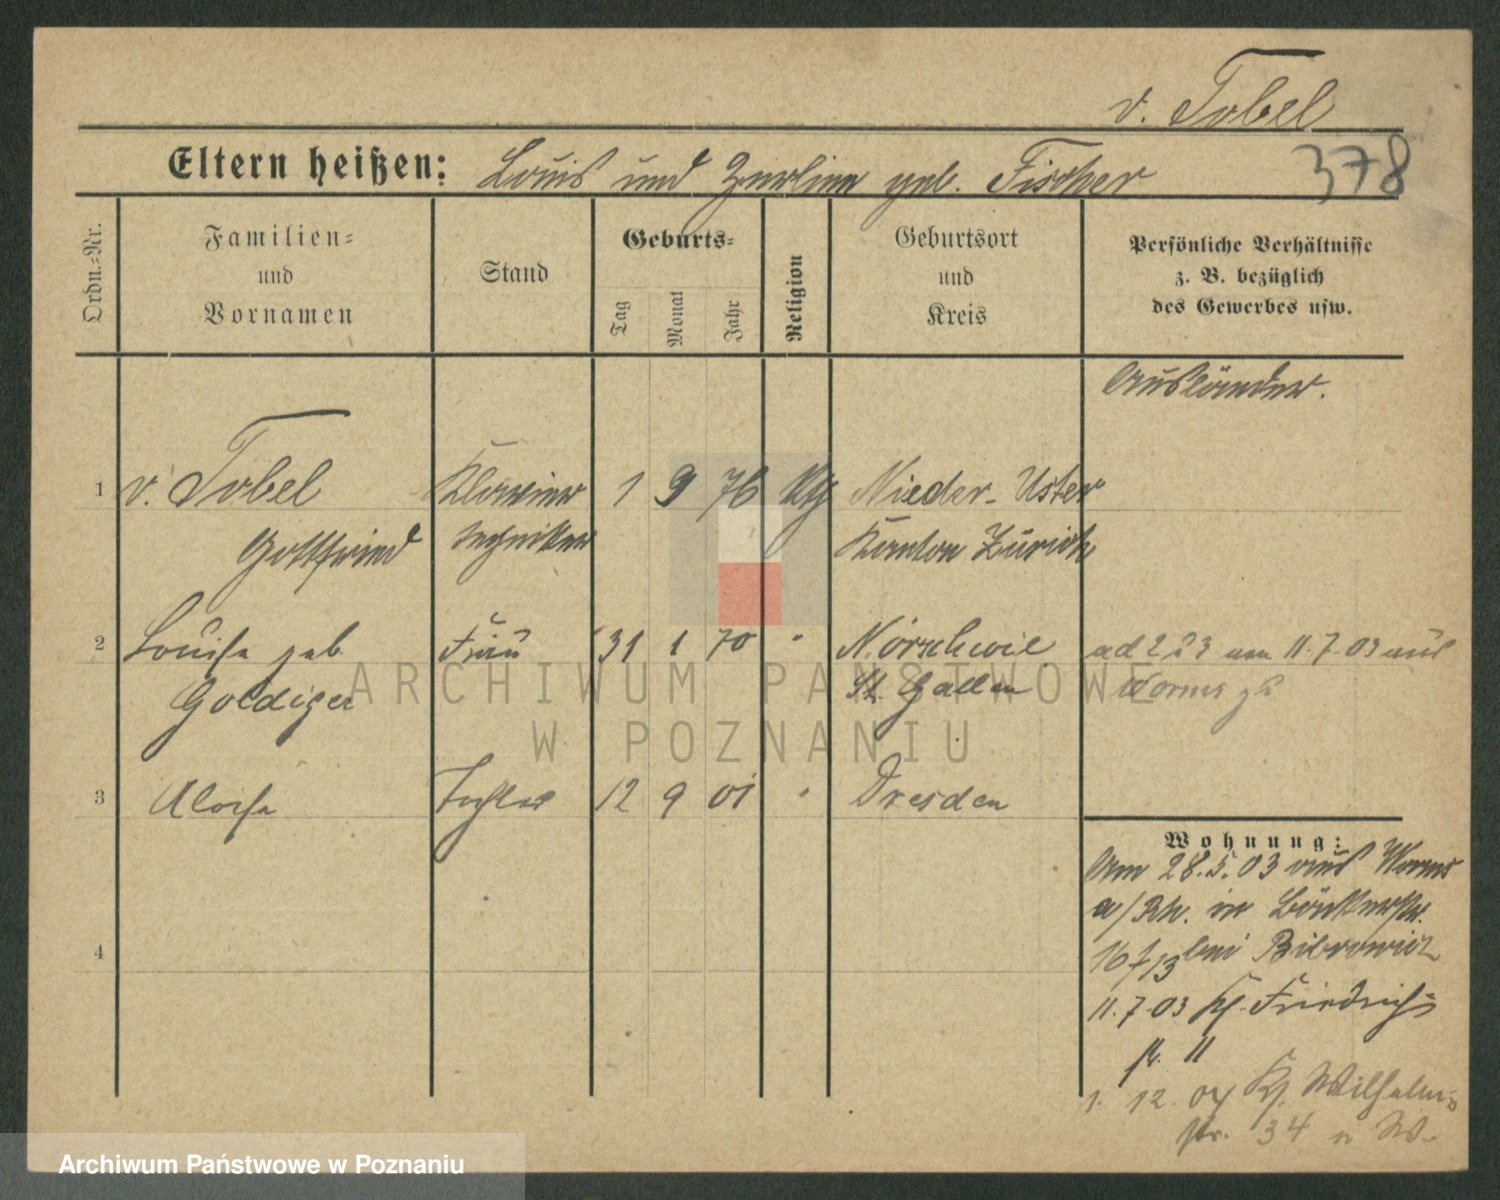 v. Tobel
Eltern heißen: Louis und Zerline geb. Fischer
378
Ordn.-Nr.
Familien-
und
Vornamen
Stand
Geburts-
Tag
Monat
Jahr
Religion
Geburtsort
und
Kreis
Persönliche Verhältnisse
z. B. bezüglich
des Gewerbes usw.
Ausländer.
1 v. Tobel Klavier 1 9 76 Nieder-Uster
Gottfried techniker Kanton Zürich
2 Louise geb. Frau 31 1 70 " ad 2 & 3 am 11.7.03 aus
Goldiger St. Gallen Worms
3 Aloise Tochter 12 9 01 " Dresden
4
Wohnung:
Am 28.5.03 aus Worms
a/Rh. in Bäckerstr.
bei Bibrowicz
11.7.03 Friedrich-
str. 11
1. 12. 04 Wilhelm-
str. 34
ARCHIWUM PAŃSTWOWE
W POZNANIU
Archiwum Państwowe w Poznaniu